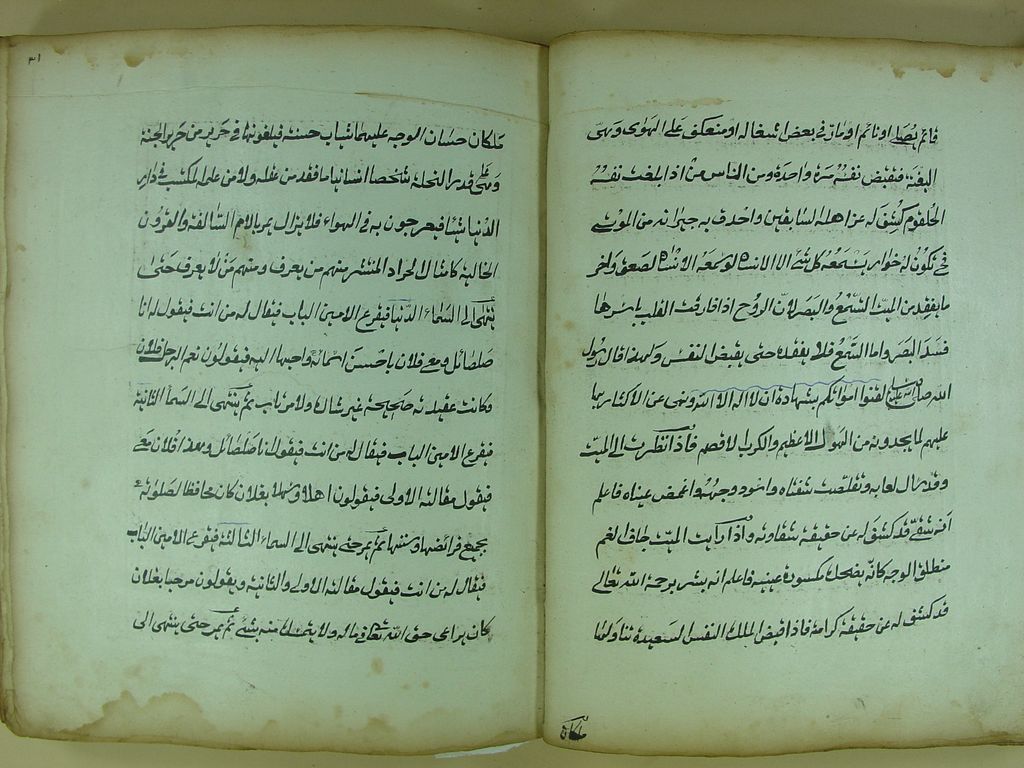 قائم يصلى او نائم او مارّ فى بعض اشغاله او منعكف على الهوى وهى
البغتة فتقبض نفسه مرة واحدة ومن الناس من اذا بلغت نفسه
الحلقوم كشف له عن اهله السابقين واحدق به جيرانه من الموتى
فح تكون له خوار يسمعه كل شئ الا الانسان لو سمعه الانسان لصعق واخر
ما يفقد من الميت السمع والبصر لان الروح اذا فارقت القلب باسرها
فسد البصر واما السمع فلا يفقده حتى يقبض النفس ولهذا قال رسول
الله صلى الله عليه لقنوا امواتكم بشهادة ان لا اله الا الله ونهى عن الاكثار بها
عليهم لما يجدونه من الهول الاعظم والكرب الاقصم فاذا نظرت الى الميت
وقد سال لعابه وتقلصت شفتاه واسود وجهه واغمض عيناه فاعلم
انه شقى قد كشف له عن حقيقة شقاوته واذا رايت الميت جاف الفم
منطلق الوجه كانه يضحك مكسورة عينيه فاعلم انه بشر برحمة الله تعالى
قد كشف له عن حقيقة كرامة فاذا قبض الملك النفس السعيدة تناولها
ملكان
٣١
ملكان حسان الوجه عليهما ثياب حسنة فيلفونها فى حرير من حرير الجنة
وهى على قدر النحلة شخصا انسانيا ما فقد من عقله ولا من علمه المكتسب فى دار
الدنيا شيئا فيعرجون به فى الهواء فلا يزال يمر بالامم السالفة والقرون
الخالية كامثال الجراد المنتشر منهم من يعرف ومنهم من لا يعرف حتى
ينتهى الى السماء الدنيا فيقرع الامين الباب فيقال له من انت فيقول له انا
صلصائل ومعى فلان باحسن اسمائه واحبها اليه فيقولون نعم الرجل فلان
وكانت عقيدته صحيحة غير شاك ولا مرتاب ثم ينتهى الى السماء الثانية
فيقرع الامين الباب فيقال له من انت فيقول انا صلصائل وهذا فلان معى
فيقول مقالته الاولى فيقولون اهلا وسهلا بفلان كان محافظا لصلوته
بجميع فرائضها وسننها ثم يمر حتى ينتهى الى السماء الثالثة فيقرع الامين الباب
فيقال له من انت فيقول مقالته الاولى والثانية ويقولون مرحبا بفلان
كان يراعى حق الله تعالى فى ماله ولا يتمسك منه بشئ ثم يمر حتى ينتهى الى